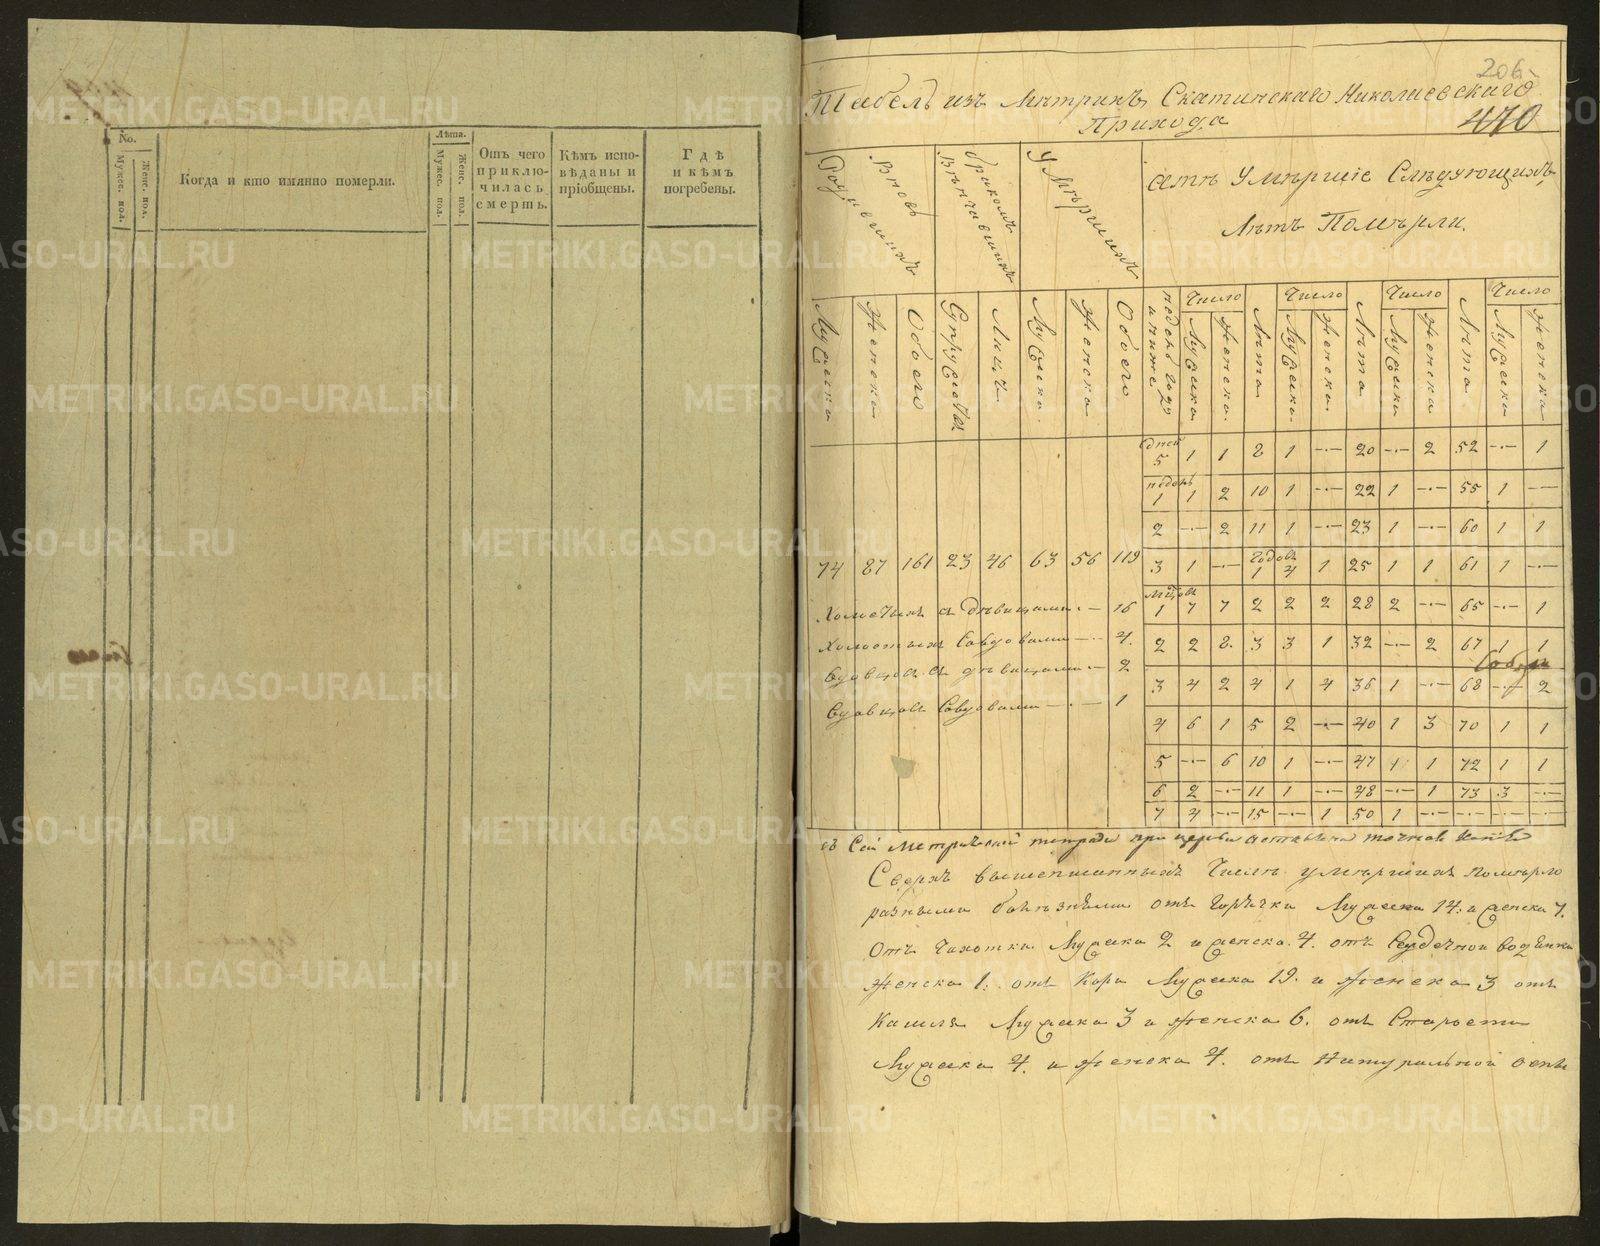 No.
Мужес. пол.
Женс. пол.
Когда и кто имянно померли.
Лѣта.
Мужес. пол.
Женс. пол.
Отъ чего
приклю-
чилась
смерть.
Кѣмъ испо-
вѣданы и
пріобщены.
Гдѣ
и кѣмъ
погребены.
206
Табель изъ Метрикъ Скатинскаго Николаевскаго
Прихода
470
Вновь
Родившихъ
бракомъ
Вѣнчавшихъ
Умѣршихъ
Умѣршіе Слѣдующихъ
Лѣтъ Помѣрли.
Мужеска
Женска
Обоего
Супружествъ
Лицъ
Мужска
Женска
Обоего
Число
Мужска
Женска
Лѣта
Число
Мужска
Женска
Лѣта
Число
Мужска
Женска
Лѣта
Число
Мужска
Женска
дней
5 1 1 2 1 —·— 20 —·— 2 52 —·— 1
недель
1 1 2 10 1 —·— 22 1 —·— 55 1 —
2 —·— 2 11 1 —·— 23 1 —·— 60 1 1
74 87 161 23 46 63 56 119
годовъ
3 1 —·— 1 4 1 25 1 1 61 1 —·—
1 7 7 2 2 2 28 2 —·— 65 —·— 1
Холостыхъ съ дѣвицами — 16
2 2 2 3 3 1 32 —·— 2 67 1 1
Холостыхъ со вдовами — 4.
3 4 2 4 1 4 36 1 —·— 68 —·— 2
Вдовцовъ съ дѣвицами — 2
4 6 1 5 2 —·— 40 1 3 70 1 1
Вдовцовъ со вдовами — 1
5 —·— 6 10 1 —·— 47 1 1 72 1 1
6 2 —·— 11 1 —·— 48 —·— 1 73 3 —·—
7 4 —·— 15 —·— 1 50 1 —·— —·— —·— —·—
съ Сей Метрической тетради при церкви оставлена точная Копія
Сверхъ вышеписанныхъ Числъ умѣршихъ помѣрло
разными болѣзнями отъ Горячки Мужеска 14: и женска 7.
Отъ Чахотки Мужска 2 и женска 4. отъ Сердечной водянки
Женска 1: отъ Кори Мужеска 19. и Женска 3 отъ
Кашля Мужеска 3 и Женска 6. отъ Старости
Мужеска 4. и Женска 4. отъ Натуральной оспы
METRIKI.GASO-URAL.RU